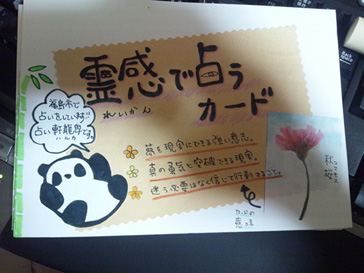 霊感で占う
れいかん
カード
福島市で
占いをしています!!
占い軒龍尊です。
夢を現実にできる強い意志。
真の勇気と突破できる現実。
迷う必要はなく信じて行動すること。
カードの
意味